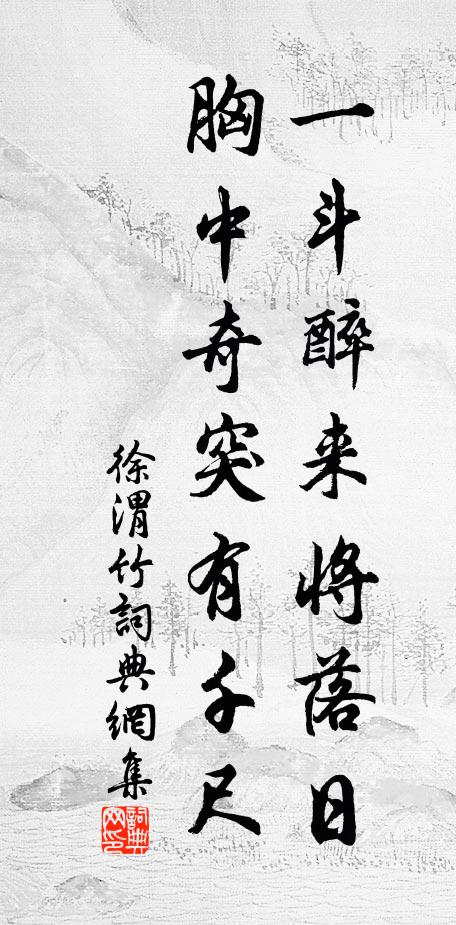 一斗醉来將落日
胸中奇突有千尺
徐渭竹詞典網集
詞典
网印